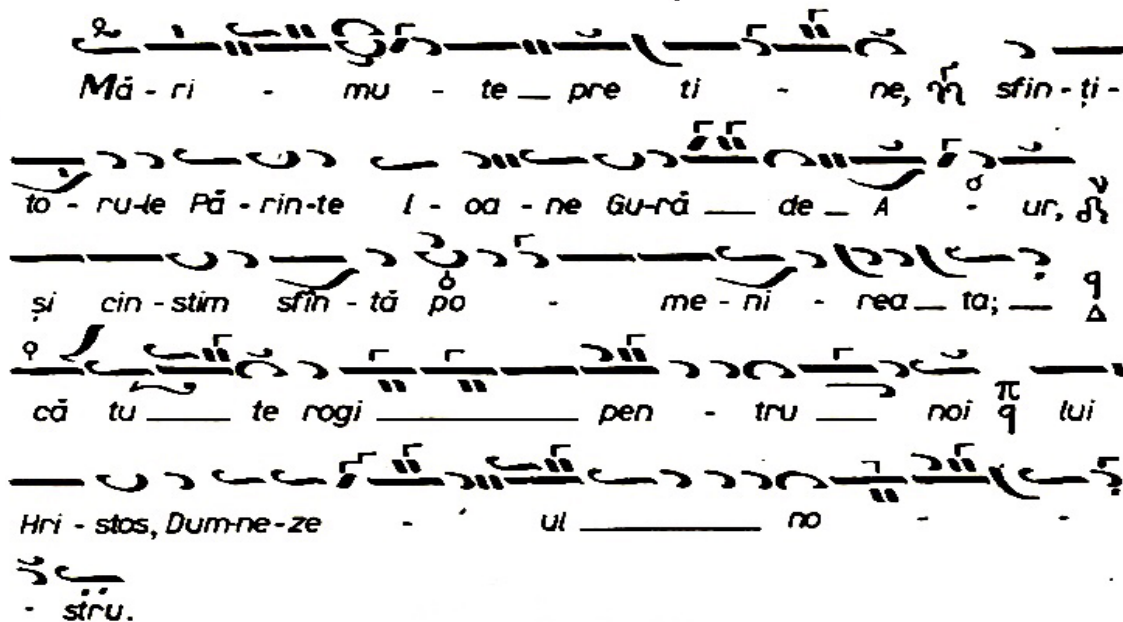 Mă - ri - mu - te _ pre ti - ne, sfin - ți -
to - ru-le Pă - rin-te I - oa - ne Gu-ră _ de _ A - ur,
și cin - stim sfîn - tă po - me - ni - rea _ ta; _
că tu _ te rogi _ pen - tru _ noi π q lui
Hri - stos, Dum-ne-ze - ul _ no - -
- stru.